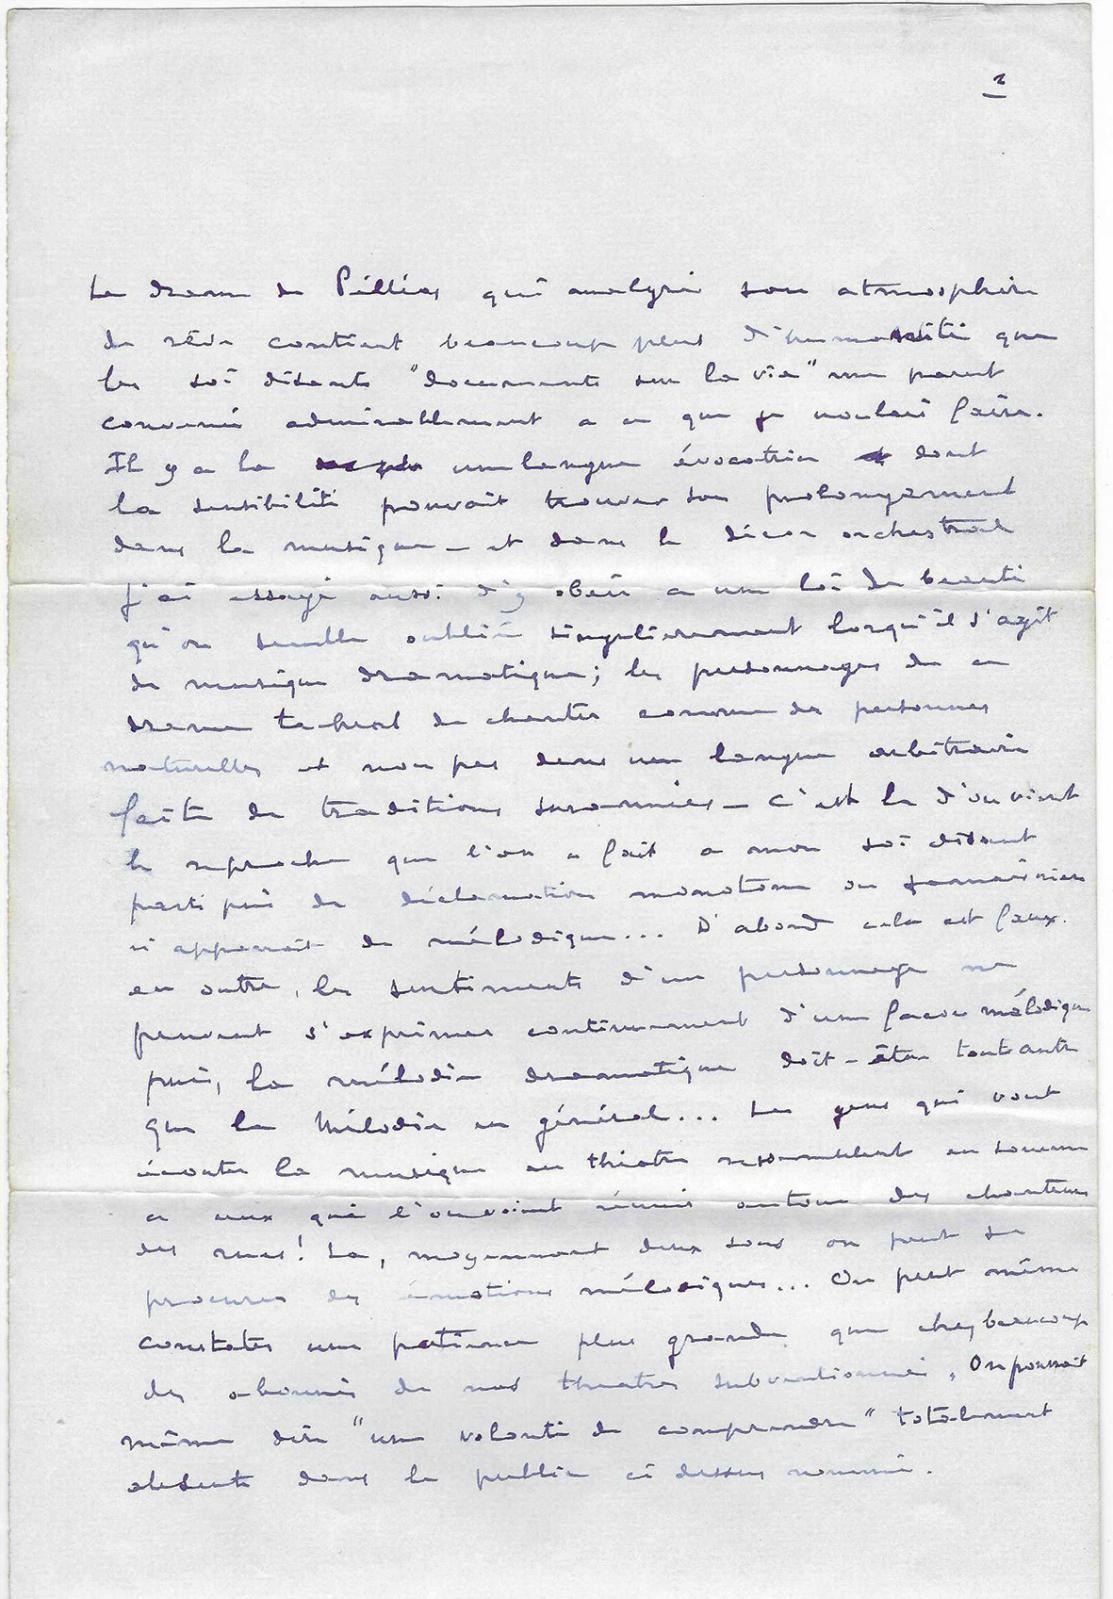 2
Le drame de Pélléas qui malgré son atmosphère
de rêve contient beaucoup plus d'humanité que
les soi disants "documents sur la vie" me parut
convenir admirablement a ce que je voulais faire.
Il y a la une langue évocatrice dont
la sensibilité pouvait trouver son prolongement
dans la musique - et dans le décor orchestral
j'ai essayé aussi d'y obéir a une loi de beauté
qu'on semble oublier singulierement lorsqu'il s'agit
de musique dramatique; les personnages de ce
drame tachent de chanter comme des personnes
naturelles et non pas dans une langue arbitraire
faite de traditions surannées - C'est la d'ou vient
le reproche que l'on a fait a mon soi disant
parti pris de déclamation monotone ou jamais rien
n'apparait de mélodique... D'abord cela est faux.
en outre, les sentiments d'un personnage ne
peuvent s'exprimer continument d'une facon mélodique
puis, la mélodie dramatique doit-être tout autre
que la Mélodie en général... Les gens qui vont
écouter la musique au théatre ressemblent en somme
a ceux que l'on voient réunis autour des chanteurs
des rues! La, moyennant deux sous on peut se
procurer des émotions mélodiques... On peut même
constater une patience plus grande que chez beaucoup
des abonnés de nos theatres subventionnés, On pourrait
même dire "une volonté de comprendre" totalement
absente dans le public ci dessus nommé.